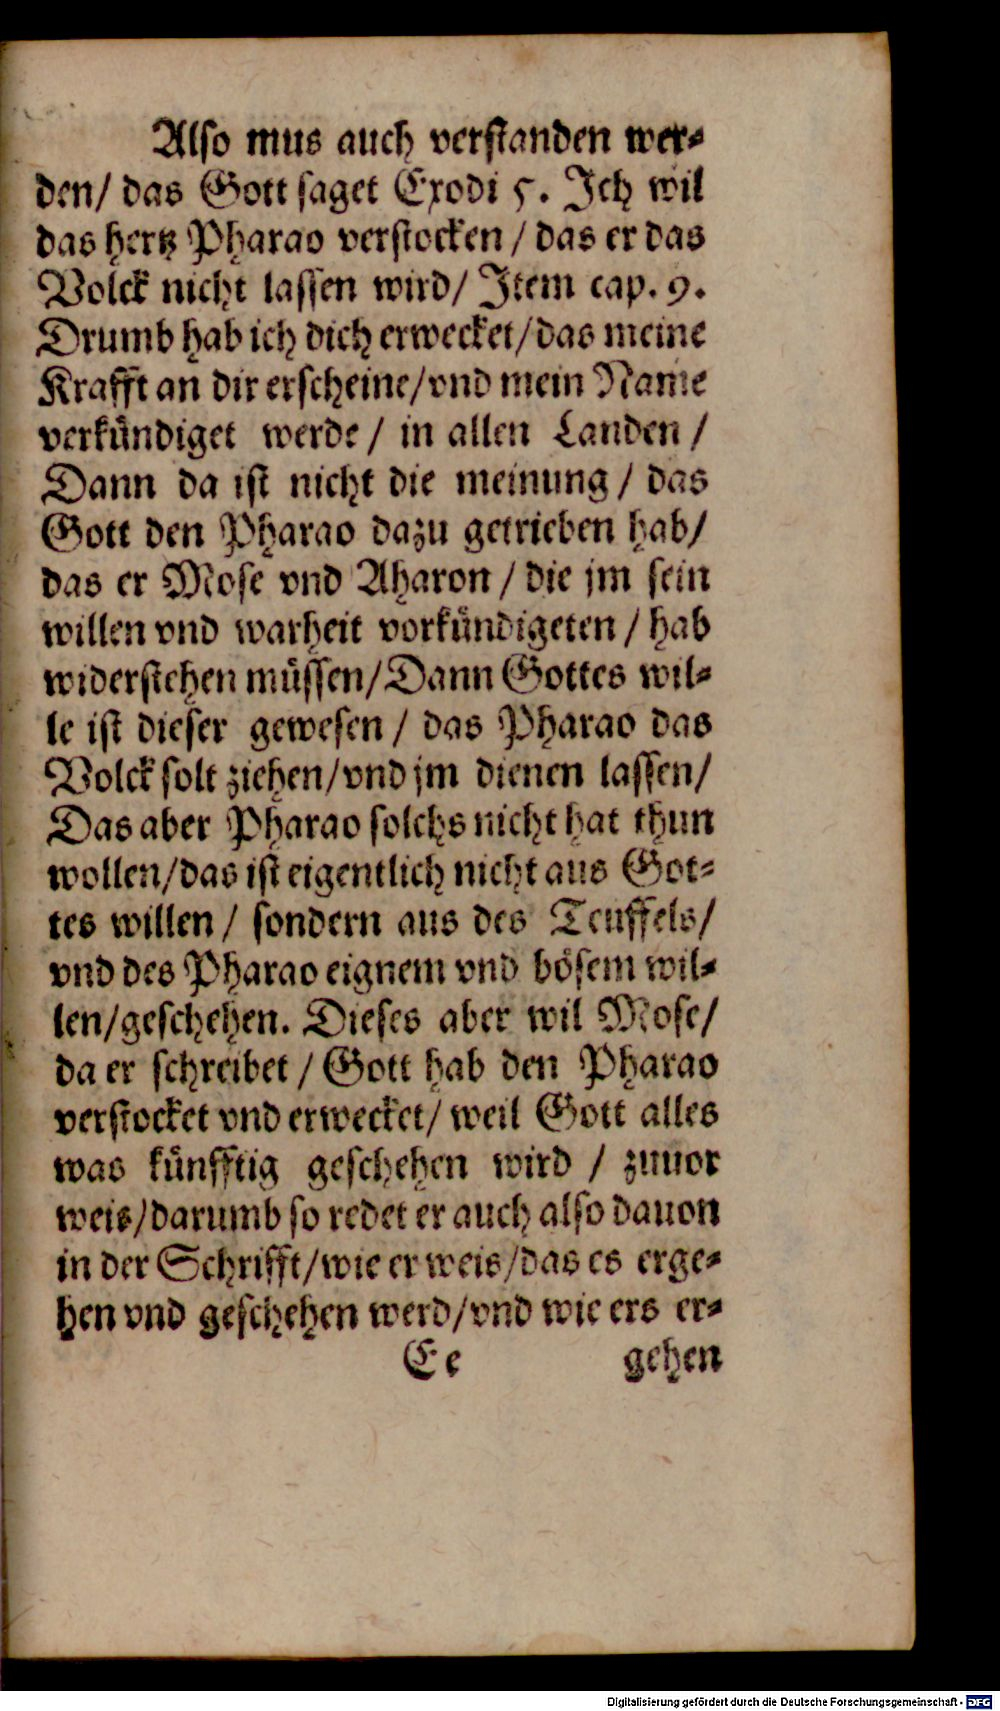 Also mus auch verstanden wer⸗
den/ das Gott saget Exodi 5. Ich wil
das hertz Pharao verstocken / das er das
Volck nicht lassen wird/ Item cap. 9.
Drumb hab ich dich erwecket/das meine
Krafft an dir erscheine/vnd mein Name
verkündiget werde / in allen Landen /
Dann da ist nicht die meinung / das
Gott den Pharao dazu getrieben hab/
das er Mose vnd Aharon / die jm sein
willen vnd warheit vorkündigeten / hab
widerstehen müssen/Dann Gottes wil⸗
le ist dieser gewesen / das Pharao das
Volck solt ziehen/vnd jm dienen lassen/
Das aber Pharao solchs nicht hat thun
wollen/das ist eigentlich nicht aus Got⸗
tes willen / sondern aus des Teuffels/
vnd des Pharao eignem vnd bösem wil⸗
len/geschehen. Dieses aber wil Mose/
da er schreibet / Gott hab den Pharao
verstocket vnd erwecket/ weil Gott alles
was künfftig geschehen wird / zuuor
weis/darumb so redet er auch also dauon
in der Schrifft/wie er weis/das es erge⸗
hen vnd geschehen werd/vnd wie ers er⸗
Ee gehen
Digitalisierung gefördert durch die Deutsche Forschungsgemeinschaft - DFG